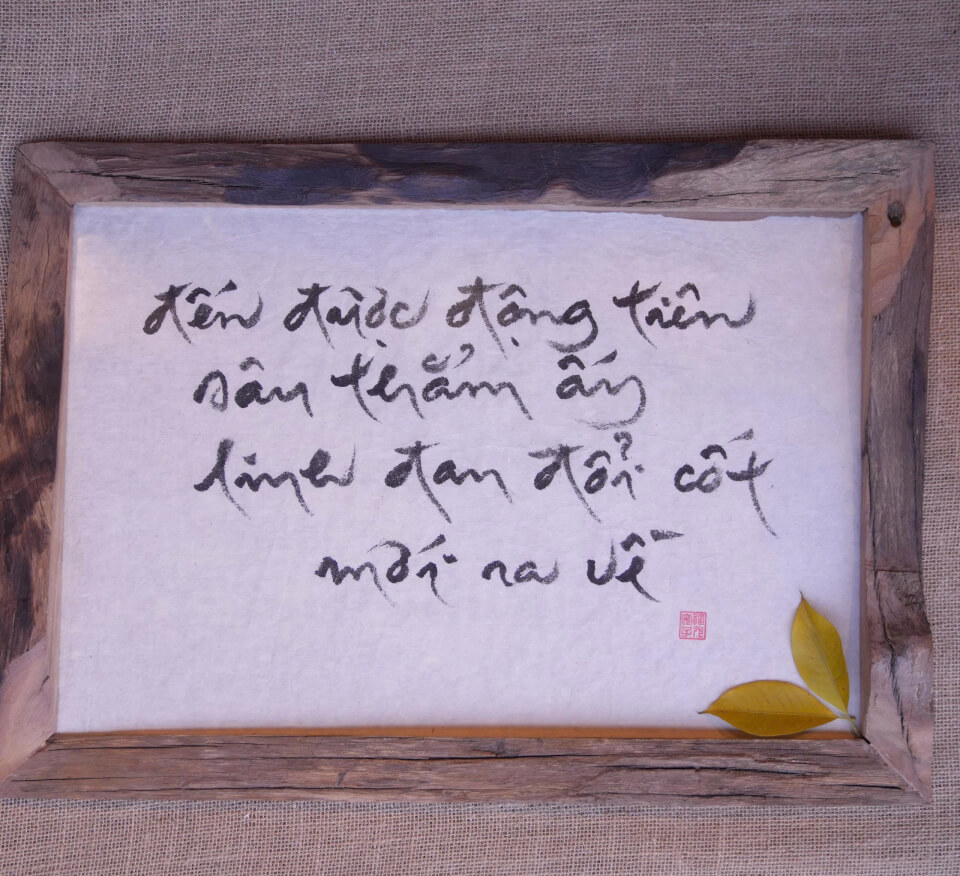 đến được động tiên
sâu thẳm ấy
linh đan đổi cốt
mới ra về